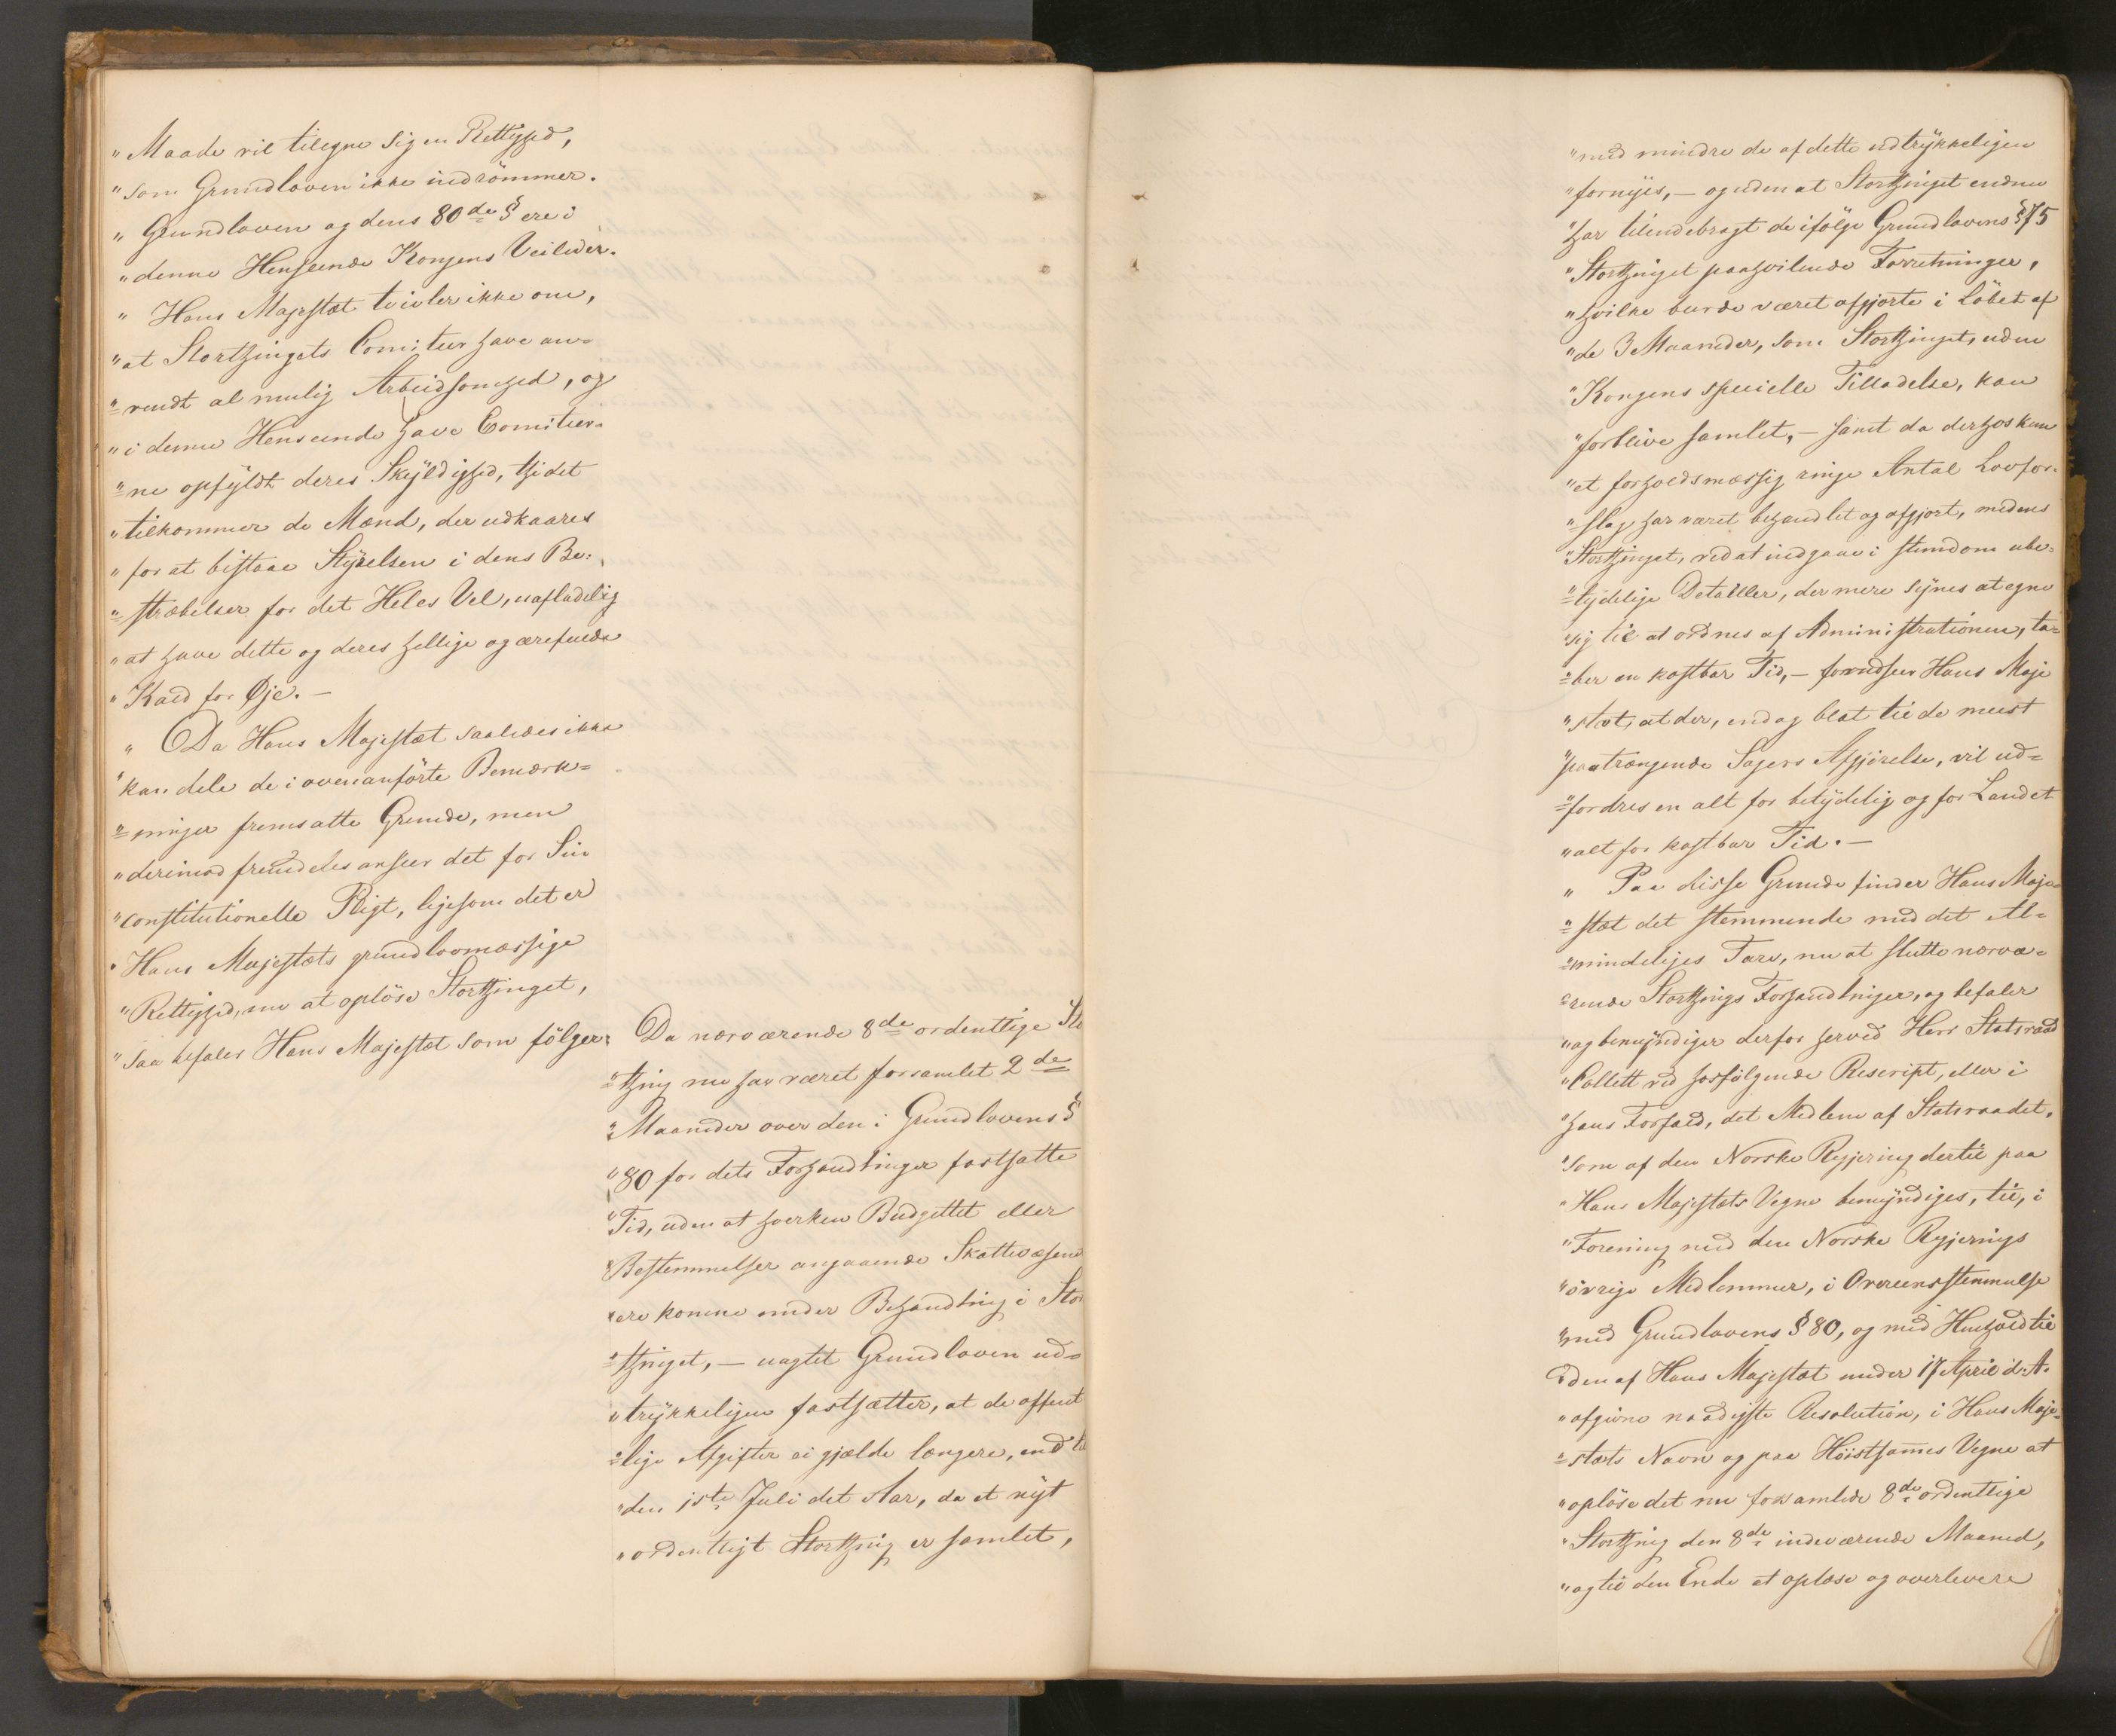 "Maade vil tilegne sig en Rettighed,
"som Grundloven ikke indrömmer.
"Grundloven og dens 80de § ere i
"denne Henseende Kongens Veileder.
"Hans Majestæt tvivler ikke om,
"at Storthingets Comiteer have an=
"=vendt al mulig Arbeidsomhed, og
"i denne Henseende have Comiteer=
"=ne opfyldt deres Skyldighed, thi det
"tilkommer de Mænd, der udkaares
"for at bistaae Styrelsen i dens Be=
"=stræbelser for det Heles Vel, uafladelig
"at have dette og deres hellige og ærefulde
"Kald for Øje.—
"Da Hans Majestæt saaledes ikke
"kan dele de i ovenanförte Bemærk=
"=ninger fremsatte Grunde, men
"derimod fremdeles anseer det for Sin
"constitutionelle Pligt, ligesom det er
"Hans Majestæts grundlovmæssige
"Rettighed, nu at oplöse Storthinget,
"saa befaler Hans Majestæt som fölger:
Da nærværende 8de ordentlige Sto
"=thing nu har været forsamlet 2de
"Maaneder over den i Grundlovens §
"80 for dets Forhandlinger fastsatte
"Tid, uden at hverken Budgettet eller
"Bestemmelser angaaende Skattevæsenet
"ere komne under Behandling i Stor
"=thinget, — uagtet Grundloven ud=
"trykkeligen fastsætter, at de offent
"=lige Afgifter ei gjælde længere, end til
"den 1ste Juli det Aar, da et nyt
"ordentligt Storthing er samlet,
"med mindre de af dette udtrykkeligen
"fornyes, — og uden at Storthinget endnu
"har tilendebragt de ifölge Grundlovens § 75
"Storthinget paahvilende Forretninger,
"hvilke burde været afgjorte i Löbet af
"de 3 Maaneder, som Storthinget, uden
"Kongens specielle Tilladelse, kan
"forblive samlet, — samt da derhos kun
"et forholdsmæssig ringe Antal Lovfor=
"=slag har været behandlet og afgjort, medens
"Storthinget, ved at indgaae i stundom ube=
"=tydelige Detailler, der mere synes at egne
"sig til at ordnes af Administrationen, ta=
"=ber en kostbar Tid, — forudseer Hans Maje
"stæt, at der, endog blot til de meest
"paatrængende Sagers Afgjörelse, vil ud=
"=fordres en alt for betydelig og for Landet
"alt for kostbar Tid.—
"Paa disse Grunde finder Hans Maje=
"=stæt det stemmende med det Al=
"=mindeliges Tarv, nu at slutte nærvæ=
"=rende Storthings Forhandlinger, og befaler
"og bemyndiger derfor herved Herr Statsraad
"Collett ved hosfölgende Rescript, eller i
"hans Forfald, det Medlem af Statsraadet,
"som af den Norske Regjering dertil paa
"Hans Majestæts Vegne bemyndiges, til, i
"Forening med den Norske Regjerings
"övrige Medlemmer, i Overeensstemmelse
"med Grundlovens § 80, og med Henhold til
"den af Hans Majestæt under 17 April d. A.
"afgivne naadigste Resolution, i Hans Maje=
"=stæts Navn og paa Höistsammes Vegne at
"oplöse det nu forsamlede 8de ordentlige
"Storthing den 8de indeværende Maaned,
"og til den Ende at oplæse og overlevere